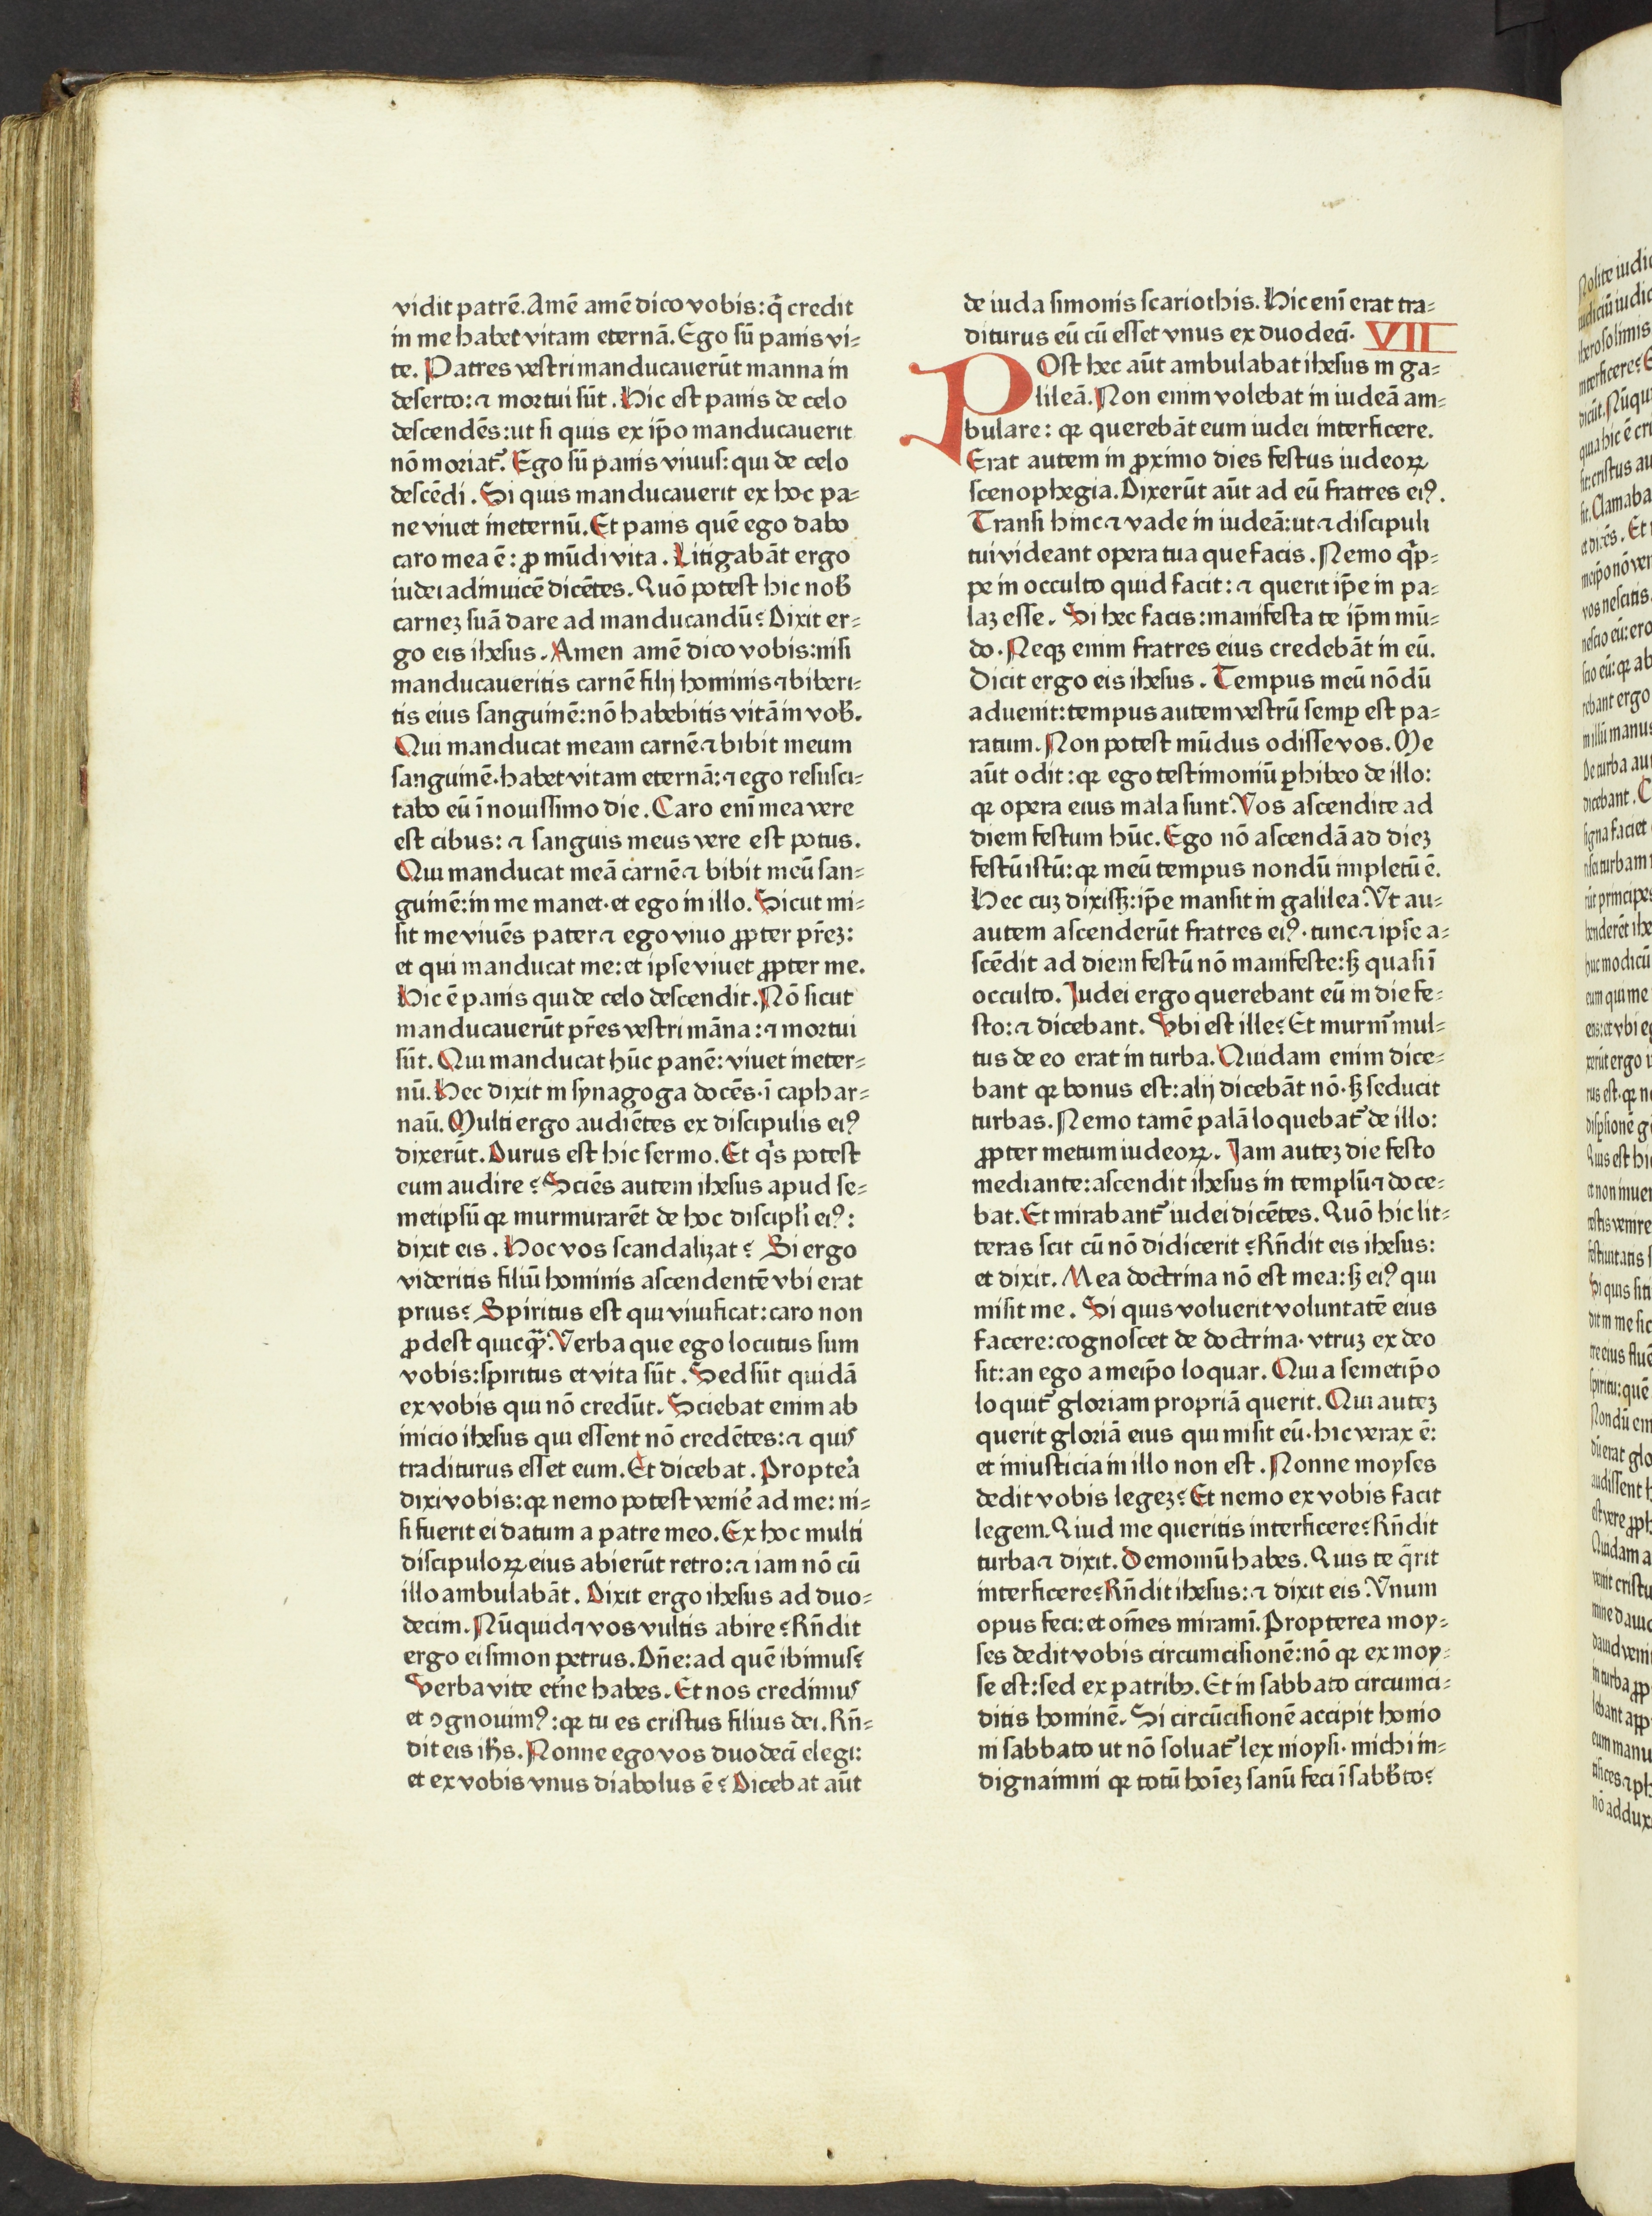 vidit patrē. Amē amē dico vobis: q̄ credit
in me habet vitam eternā. Ego sū panis vi⸗
te. Patres vestri manducauerūt manna in
deserto: ⁊ mortui sūt. Hic est panis de celo
descendēs: ut si quis ex ip̄o manducauerit
nō moriat᷑. Ego sū panis viuus: qui de celo
descēdi. Si quis manducauerit ex hoc pa⸗
ne viuet ineternū. Et panis quē ego dabo
caro mea ē: ꝓ mūdi vita. Litigabāt ergo
iudei adinuicē dicētes. Quō potest hic nob̄
carneȝ suā dare ad manducandū? Dixit er⸗
go eis ihesus. Amen amē dico vobis: nisi
manducaueritis carnē filij hominis ⁊ biberi⸗
tis eius sanguinē: nō habebitis vitā in vob̄.
Qui manducat meam carnē ⁊ bibit meum
sanguinē· habet vitam eternā: ⁊ ego resusci⸗
tabo eū ī nouissimo die. Caro enī mea vere
est cibus: ⁊ sanguis meus vere est potus.
Qui manducat meā carnē ⁊ bibit meū san⸗
guinē: in me manet· et ego in illo. Sicut mi⸗
sit me viuēs pater ⁊ ego viuo ꝓpter pr̄eȝ:
et qui manducat me: et ipse viuet ꝓpter me.
Hic ē panis qui de celo descendit. Nō sicut
manducauerūt pr̄es vestri māna: ⁊ mortui
sūt. Qui manducat hūc panē: viuet ineter⸗
nū. Hec dixit in synagoga docēs· ī caphar⸗
naū. Multi ergo audiētes ex discipulis eiꝰ
dixerūt. Durus est hic sermo. Et q̄s potest
eum audire? Sciēs autem ihesus apud se⸗
metipsū qꝛ murmurarēt de hoc discipli̅ eiꝰ:
dixit eis. Hoc vos scandalizat? Si ergo
videritis filiū hominis ascendentē vbi erat
prius? Spiritus est qui viuificat: caro non
ꝓdest quicq̄ꝫ. Verba que ego locutus sum
vobis: spiritus et vita sūt. Sed sūt quidā
ex vobis qui nō credūt. Sciebat enim ab
inicio ihesus qui essent nō credētes: ⁊ quis
traditurus esset eum. Et dicebat. Propterea
dixi vobis: qꝛ nemo potest veniē ad me: ni⸗
si fuerit ei datum a patre meo. Ex hoc multi
discipuloꝝ eius abierūt retro: ⁊ iam nō cū
illo ambulabāt. Dixit ergo ihesus ad duo⸗
decim. Nūquid ⁊ vos vultis abire? Rn̄dit
ergo ei simon petrus. Dn̄e: ad quē ibimus?
Verba vite etn̄e habes. Et nos credimus
et ꝯgnouimꝰ: qꝛ tu es cristus filius dei. Rn̄⸗
dit eis ih̄s. Nonne ego vos duodecī elegi:
et ex vobis vnus diabolus ē? Dicebat aūt
de iuda simonis scariothis. Hic enī erat tra⸗
diturus eū cū esset vnus ex duodecī. VII
POst hec aūt ambulabat ihesus in ga⸗
lileā. Non enim volebat in iudeā am⸗
bulare: qꝛ querebāt eum iudei interficere.
Erat autem in ꝓximo dies festus iudeoꝝ
scenophegia. Dixerūt aūt ad eū fratres eiꝰ.
Transi hinc ⁊ vade in iudeā: ut ⁊ discipuli
tui videant opera tua que facis. Nemo q̄p⸗
pe in occulto quid facit: ⁊ querit ip̄e in pa⸗
laȝ esse. Si hec facis: manifesta te ip̄m mū⸗
do. Neqȝ enim fratres eius credebāt in eū.
Dicit ergo eis ihesus. Tempus meū nōdū
aduenit: tempus autem vestrū semꝑ est pa⸗
ratum. Non potest mūdus odisse vos. Me
aūt odit: qꝛ ego testimoniū ꝑhibeo de illo:
qꝛ opera eius mala sunt. Vos ascendite ad
diem festum hūc. Ego nō ascendā ad dieȝ
festū istū: qꝛ meū tempus nondū impletū ē.
Hec cuȝ dixissȝ: ip̄e mansit in galilea. Vt au⸗
autem ascenderūt fratres eiꝰ· tunc ⁊ ipse a⸗
scēdit ad diem festū nō manifeste: sȝ quasi ī
occulto. Judei ergo querebant eū in die fe⸗
sto: ⁊ dicebant. Vbi est ille? Et murm᷑ mul⸗
tus de eo erat in turba. Quidam enim dice⸗
bant qꝛ bonus est: alij dicebāt nō· sȝ seducit
turbas. Nemo tamē palā loquebat᷑ de illo:
ꝓpter metum iudeoꝝ. Jam auteȝ die festo
mediante: ascendit ihesus in templū ⁊ doce⸗
bat. Et mirabant᷑ iudei dicētes. Quō hic lit⸗
teras scit cū nō didicerit? Rn̄dit eis ihesus:
et dixit. Mea doctrina nō est mea: sȝ eiꝰ qui
misit me. Si quis voluerit voluntatē eius
facere: cognoscet de doctrina· vtruȝ ex deo
sit: an ego a meip̄o loquar. Qui a semetip̄o
loquit᷑ gloriam propriā querit. Qui auteȝ
querit gloriā eius qui misit eū· hic verax ē:
et iniusticia in illo non est. Nonne moyses
dedit vobis legeȝ? Et nemo ex vobis facit
legem. Qiud me queritis interficere? Rn̄dit
turba ⁊ dixit. Demoniū habes. Quis te q̄rit
interficere? Rn̄dit ihesus: ⁊ dixit eis. Vnum
opus feci: et om̄es miramī. Propterea moy⸗
ses dedit vobis circumcisionē: nō qꝛ ex moy⸗
se est: sed ex patribꝫ. Et in sabbato circumci⸗
ditis hominē. Si circūcisionē accipit homo
in sabbato ut nō soluat᷑ lex moysi· michi in⸗
dignamini qꝛ totū hoīeȝ sanū feci ī sabb̄to?